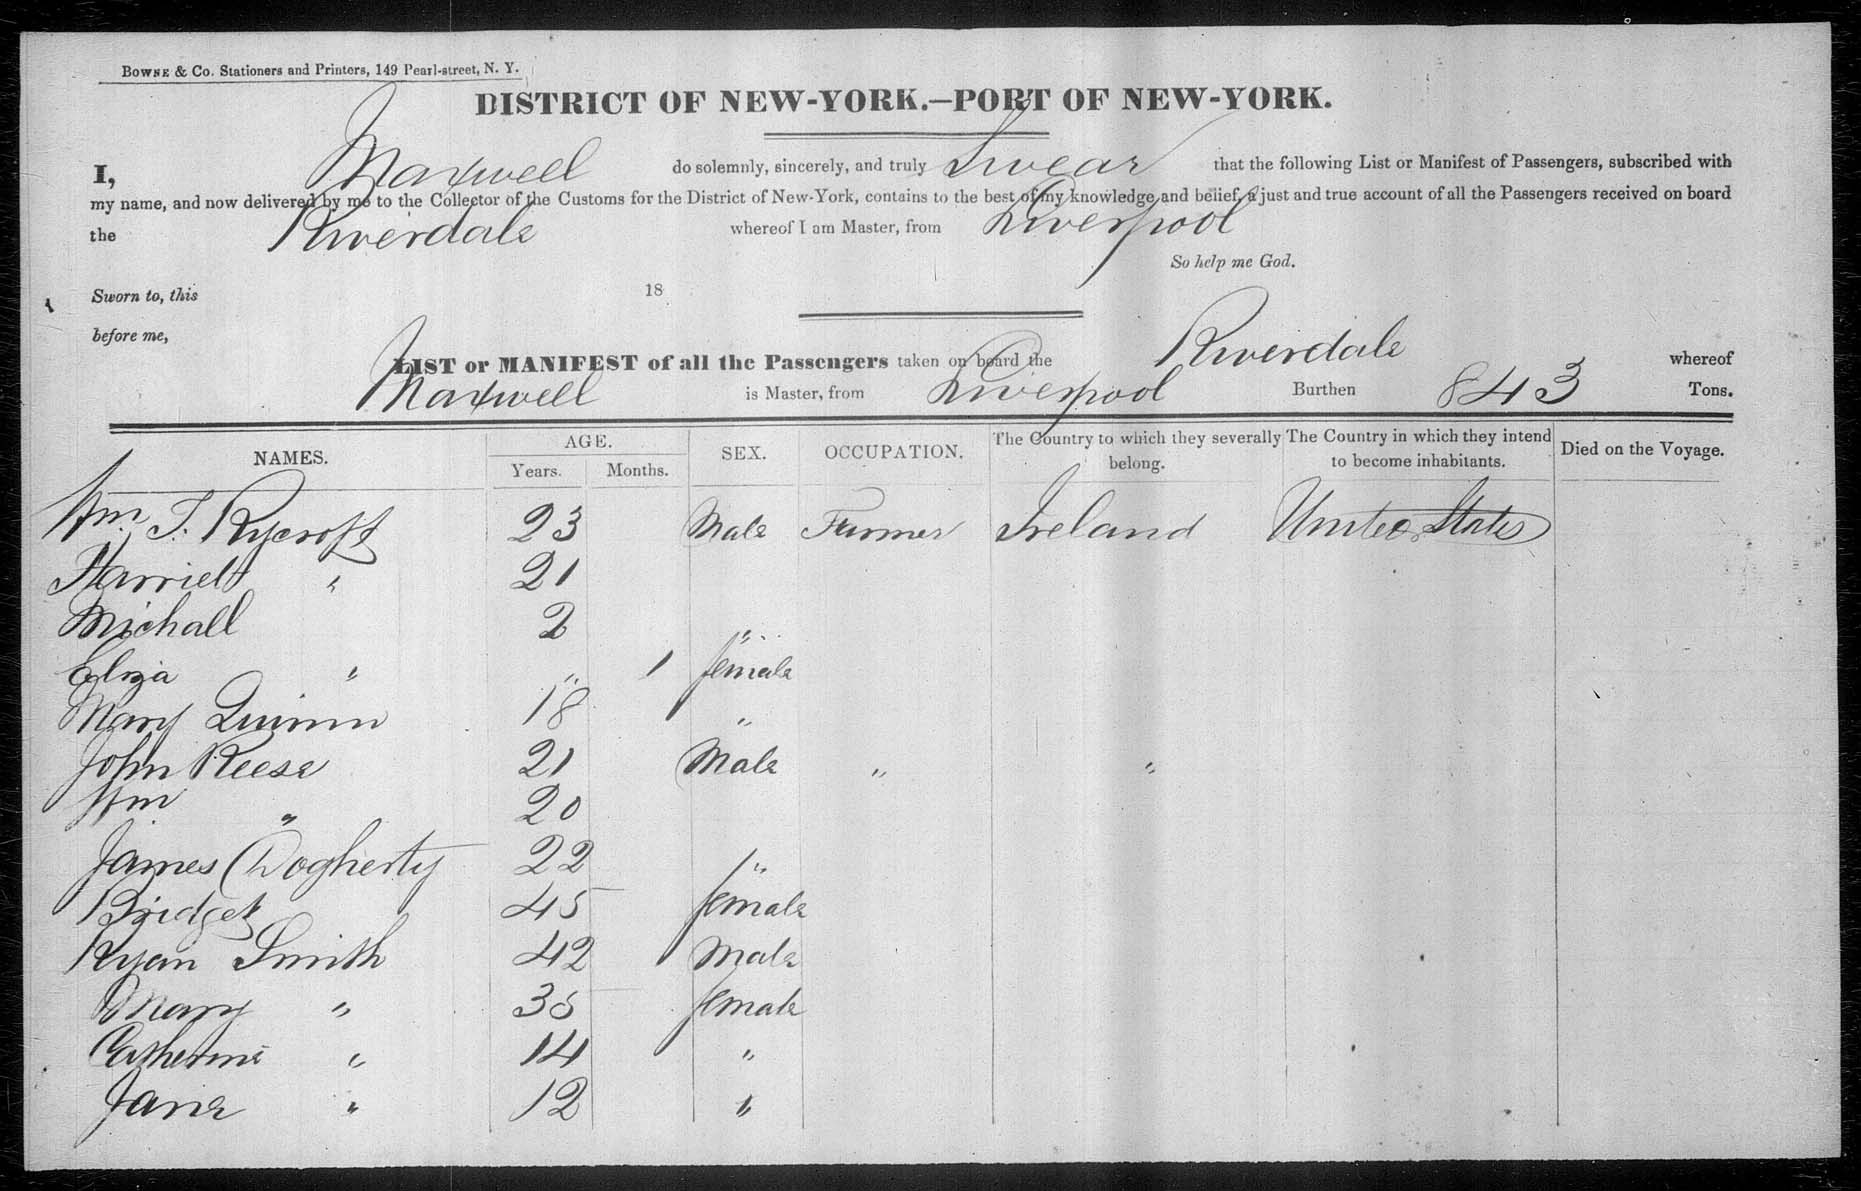 BOWNE & Co. Stationers and Printers, 149 Pearl-street, N. Y.
DISTRICT OF NEW-YORK.—PORT OF NEW-YORK.
I, Maxwell do solemnly, sincerely, and truly Swear that the following List or Manifest of Passengers, subscribed with
my name, and now delivered by me to the Collector of the Customs for the District of New-York, contains to the best of my knowledge and belief, a just and true account of all the Passengers received on board
the Riverdale whereof I am Master, from Liverpool
So help me God.
Sworn to, this 18
before me,
LIST or MANIFEST of all the Passengers taken on board the Riverdale whereof
Maxwell is Master, from Liverpool Burthen 843 Tons.
NAMES. AGE. Years. Months. SEX. OCCUPATION. The Country to which they severally belong. The Country in which they intend to become inhabitants. Died on the Voyage.
Wm T. Rycroft 23 Male Farmer Ireland United States
Harriett " 21
Michall 2 "
Eliza " " 1 female
Mary Quinn 18 "
John Reese 21 Male " "
Wm " 20
James Dogherty 22 "
Bridget 45 female
Ryan Smith 42 Male
Mary " 35 female
Catherine " 14 "
Jane " 12 "